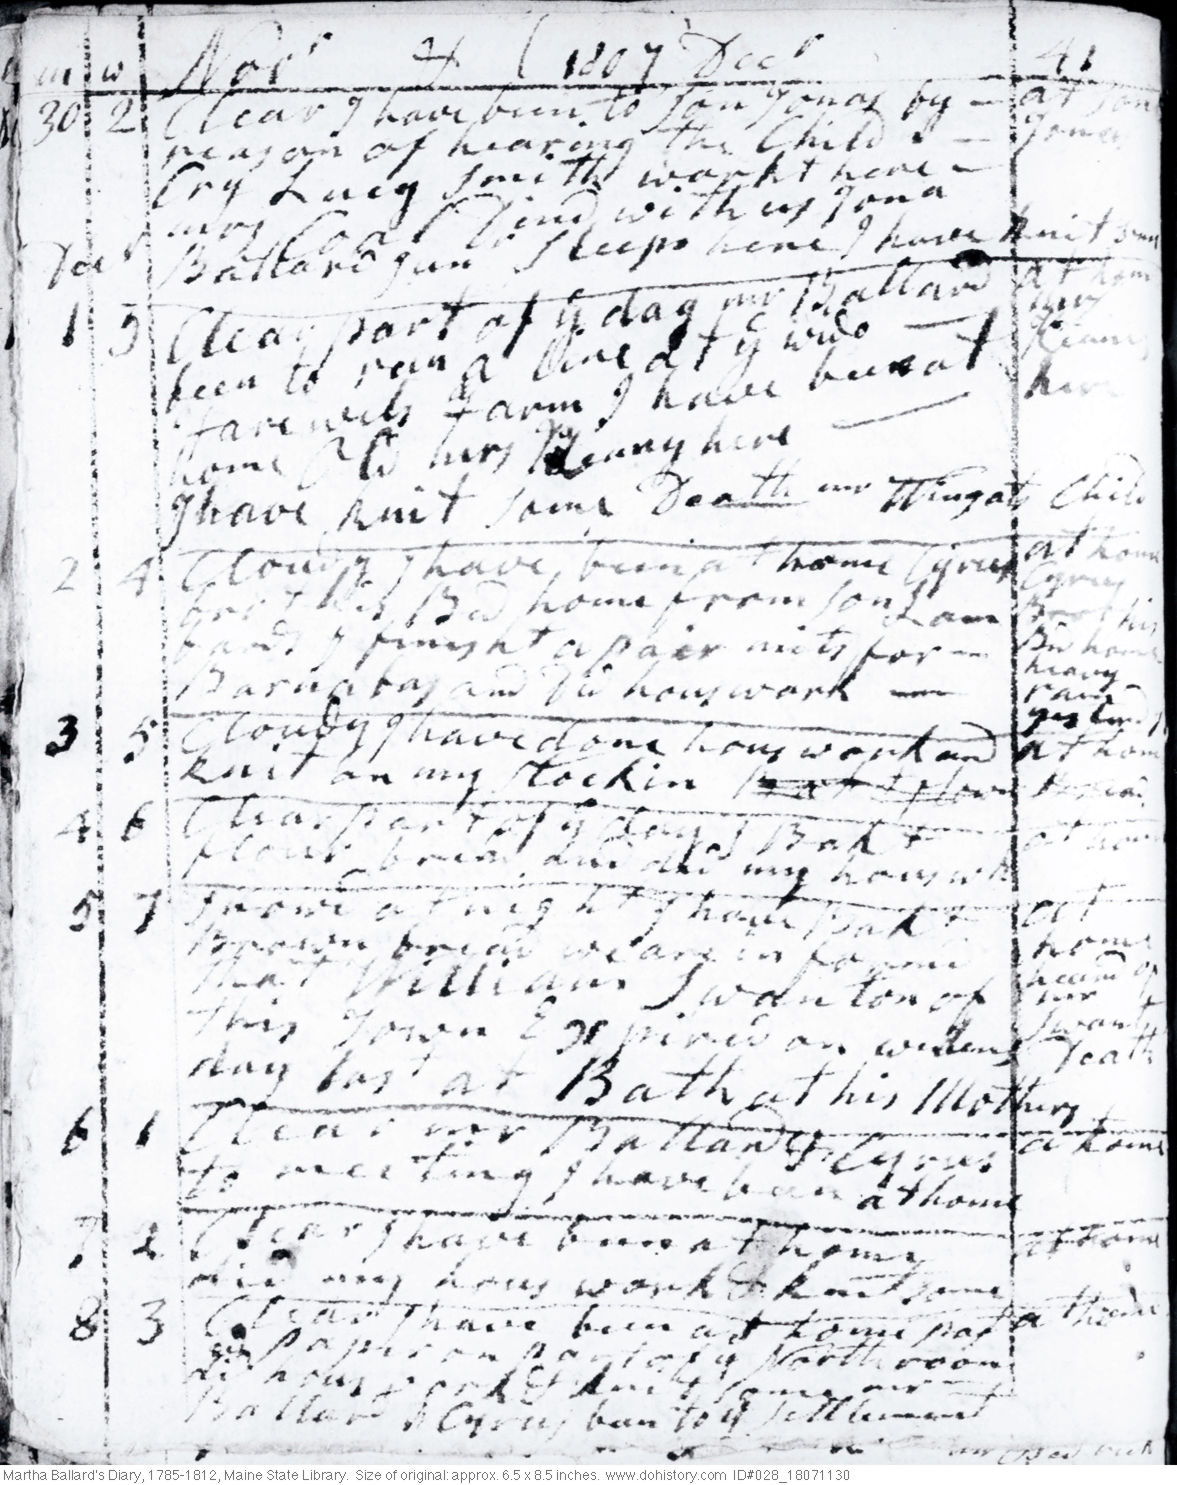 m w Novr 4 ( 1807 Decr 41
30 2 Clear I have been to Son Jonas by — at Son
reason of hearing the Child — Jonas
Cry Lucy Smith workt here —
mrs Din'd with us Jona
Ballard Junr Sleeps here I have knit Som
Decr
1 3 Clear part of ye day mr Ballard at hom
been to run a Line at ye wido — hers
Farewels Farm I have been at
home old hers here — here
I have knit some Death mr Wingats Child
2 4 Cloudy I have been at home Cyrus at home
brot his Bed home from Son Lam Cyrus
bards I finisht a pair mits for — Brot his
Barnabas and Did hous work — Bed home
heavy
rain
3 5 Cloudy I have done hous work and at hom
knit on my Stockin
4 6 Clear part of ye day I Bakt at hom
flour bread and did my hous wk
5 7 Snowd at night I have Bakt at
Brown bread we are informd home
that William Swanton of heard of
this Town Expired on wednes mr Swant
day last at Bath at his Mothers Death
6 1 Clear mr Ballard & Cyrus at home
to meeting I have been at home
7 2 Clear I have been at home at home
did my hous work & knit some
8 3 Clear I have been at home past at home
paper on part of ye North room
did hous work & knit some mr
Ballard & Cyrus been to ye Settlement
Martha Ballard's Diary, 1785-1812, Maine State Library. Size of original: approx. 6.5 x 8.5 inches. www.dohistory.com ID#028_18071130